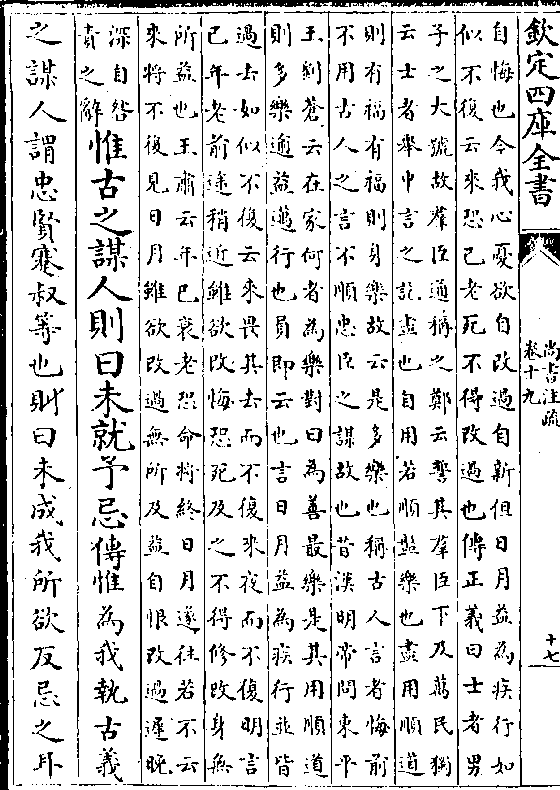 欽定四庫全書
尚書注疏
卷十九
十七
自悔也今我心憂欲自改過自新但日月益為疾行如
似不復云來恐己老死不得改過也傳正義曰士者男
子之大號故羣臣通稱之鄭云誓其羣臣下及萬民獨
云士者舉中言之訖盡也自用若順盤樂也盡用順道
則有福有福則身樂故云是多樂也稱古人言者悔前
不用古人之言不順忠臣之謀故也昔漢明帝問東平
王劉蒼云在家何者為樂對曰為善最樂是其用順道
則多樂逾益邁行也員即云也言日月益為疾行並皆
過去如似不復云來畏其去而不復來夜而不復明言
己年老前途稍近雖欲改悔恐死及之不得修改身無
所益也王肅云年已衰老恐命將終日月遂往若不云
來將不復見日月雖欲改過無所及益自恨改過遲晚
深自咎
責之辭惟古之謀人則曰未就予忌傳惟為我執古義
之謀人謂忠賢蹇叔等也則曰未成我所欲反忌之耳